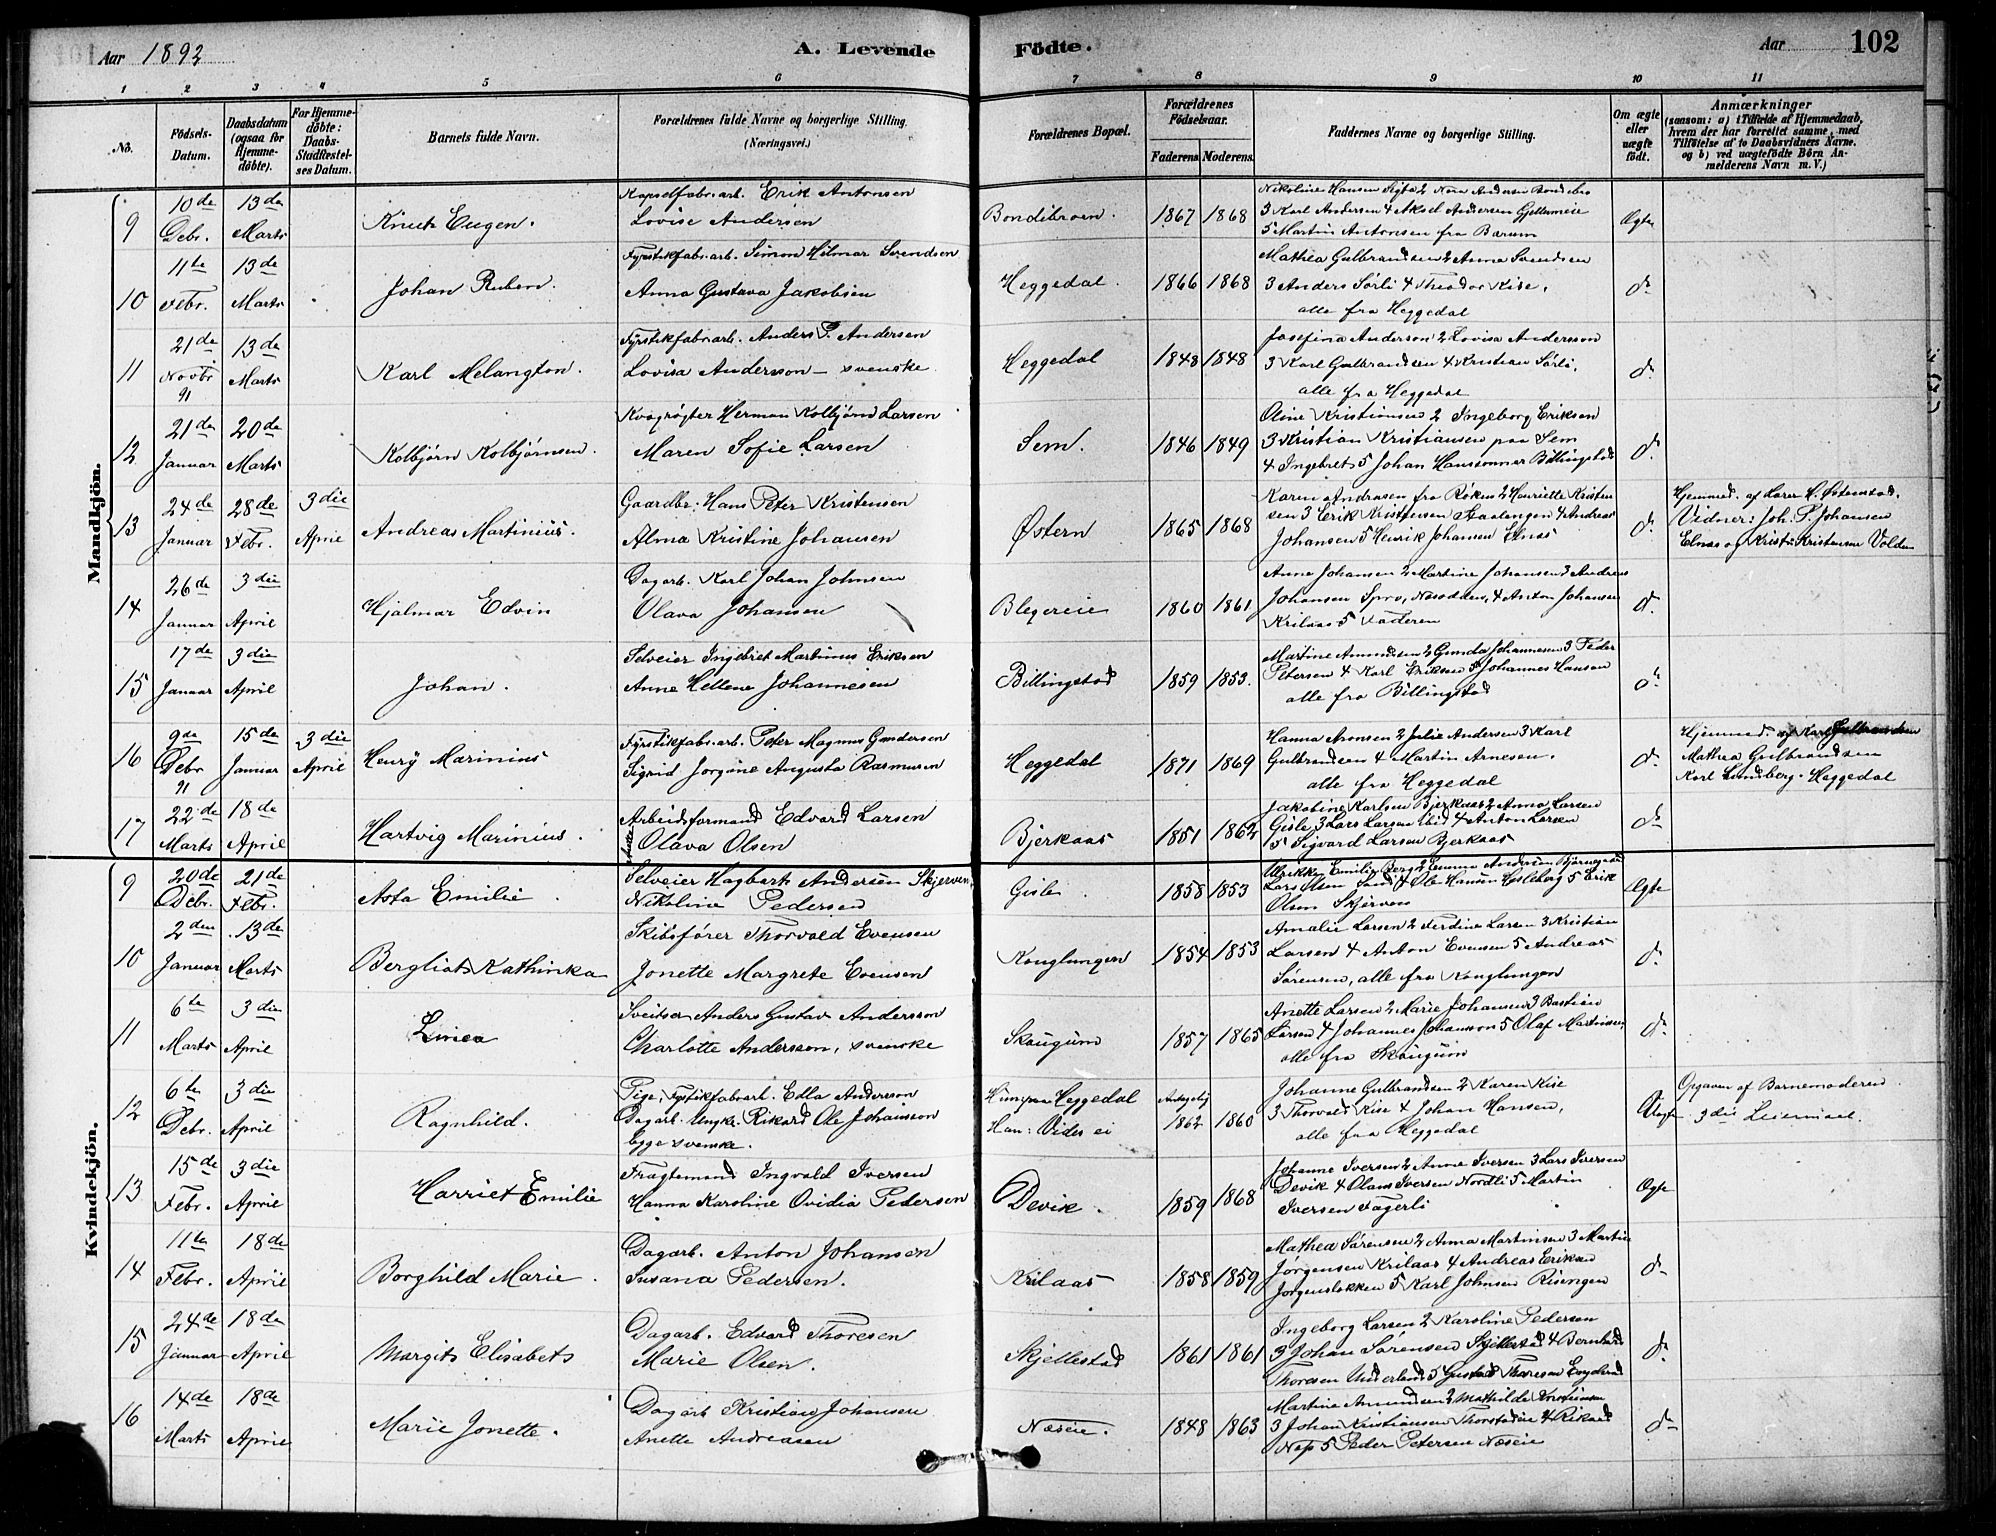 Aar 1892 A. Levende Födte. Aar 102
1 2 3 4 5 6 7 8 9 10 11
No. Födsels-Datum. Daabsdatum (ogsaa for Hjemme-döbte). For Hjemme-döbte: Daabs-Stadfæstel-ses Datum. Barnets fulde Navn. Forældrenes fulde Navne og borgerlige Stilling. (Næringsvei.) Forældrenes Bopæl. Forældrenes Födselsaar. Faderens Moderens. Faddernes Navne og borgerlige Stilling. Om ægte eller uægte födt. Anmærkninger (saasom: a) i Tilfælde af Hjemmedaab, hvem der har forrettet samme, med Tilföielse af to Daabsvidners Navne. og b) ved uægtefödte Börn An-melderens Navn m. V.)
Mandkjön.
9 10de Debr. 13de Marts Knut Eugen. Kapselfabr.arb. Erik Antonsen
Lovise Andersen Bondibroen. 1867 1868 Nikoline Hansen 2
3 Karl Andersen 4 Aksel Andersen Gjellumeie
5 Martin Antonsen fra Bærum Ægte
10 11te Febr. 13de Marts Johan Ruben. Fyrstikfabr.arb. Simon Hilmar Svendsen
Anna Gustava Jakobsen Heggedal. 1866 1868 Mathea Gulbrandsen 2 Anna Svendsen
3 Anders Sørli 4 Theodor Kise,
alle fra Heggedal do
11 21de Novbr 91 13de Marts Karl Melangton. Fyrstikfabr.arb. Anders P. Andersen
Lovisa Andersson - svenske Heggedal 1848 1848 Josefina Anderson 2 Lovisa Andersson
3 Karl Gulbrandsen 4 Kristian Sørli,
alle fra Heggedal do
12 21de Januar 20de Marts Kolbjørn Kolbjørnsen. Kvægrøgter Herman Kolbjørn Larsen
Maren Sofie Larsen Sem. 1846 1849 Oline Kristiansen 2 Ingeborg Eriksen
3 Kristian Kristiansen paa Sem
4 Ingebret 5 Johan Hanssønner Billingstad do
13 24de Januar 28de Febr. 3die April Andreas Martinius. Gaardbr. Hans Peter Kristensen
Alma Kristine Johansen Østern 1865 1868 Karen Andreasen fra Røken 2 Henriette Kristen
sen 3 Erik Kristensen 4 Andreas
Johansen 5 Henrik Johansen Elnes do Hjemmed. af Lærer H. Østenstad.
Vidner: Joh. P. Johansen
Elnes og Kristen Volden
14 26de Januar 3die April Hjalmar Edvin Dagarb. Karl Johan Johnsen
Olava Johansen Blegereie 1860 1861 Anne Johansen 2 Martine Johansen 3 Andreas
Johansen Spro, Nesodden, 4 Anton Johansen
Krilaas 5 Faderen do
15 17de Januar 3die April Johan. Selveier Ingebret Martinus Eriksen
Anne Hellene Johannesen Billingstad 1859 1853. Martine Amundsen 2 Gunda Johannesen 3 Peder
Petersen 4 Karl Eriksen 5 Johannes Hansen
alle fra Billingstad do
16 9de Debr 91 15de Januar 3die April Henry Marinius Fyrstikfabr.arb. Peter Magnus Gundersen
Sigrid Jørgine Augusta Rasmusen Heggedal 1871 1869 Hanna Aronsen 2 Julie Andersen 3 Karl
Gulbrandsen 4 Martin Arnesen.
alle fra Heggedal do Hjemmed. af Karl Gulbrandsen
Mathea Gulbrandsen
Karl Lundberg. Heggedal
17 22de Marts 18de April Hartvig Marinius. Arbeidsformand Edvard Larsen
Olava Olsen Bjerkaas 1851 1862 Jakobine Karlsen Bjerkaas 2 Anna Larsen
Gisle 3 Lars Larsen ibid 4 Anton Larsen
5 Sigvard Larsen Bjerkaas do
Kvindekjön.
9 20de Debr. 21de Febr. Asta Emilie Selveier Hagbart Andersen Skjerven
Nikoline Pedersen Gisle 1858 1853 Ulrikke Emilie Berg 2 Emma Andersen
Lars Olsen 4 Ole Hansen Hesleberg 5 Erik
Olsen Skjerven Ægte
10 2den Januar 13de Marts Bergliot Kathinka Skibsfører Thorvald Evensen
Jonette Margrete Evensen Konglungen 1854 1853 Amalie Larsen 2 Ferdine Larsen 3 Kristian
Larsen 4 Anton Evensen 5 Andreas
Sørensen, alle fra Konglungen do
11 6te Marts 3die April Linea Sveitser Anders Gustav Andersson
Charlotte Andersson, svenske Skaugum 1857 1865 Anette Larsen 2 Marie Johansen 3 Bastian
Larsen 4 Johannes Johansson 5 Olaf Martinsen
alle fra Skaugum do
12 6te Debr. 3die April Ragnhild. Pige, Fyrstikfabr.arb. Edla Andersson
Dagarb. Ungk. Rikard Ole Johansson
begge svenske. Hun paa Heggedal
Han: Vides ei 1862 1860 Johanne Gulbrandsen 2 Karen Kise
3 Thorvald Kise 4 Johan Hansen,
alle fra Heggedal Uægte Opgaven af Barnemoderen
3die Leiermaal.
13 15de Febr. 3die April Harriet Emilie Fragtemand Ingvald Iversen
Hanna Karoline Ovidia Pedersen Devik. 1859 1868 Johanne Iversen 2 Anne Iversen 3 Lars Iversen
Devik 4 Olaus Iversen Nordli 5 Martin
Iversen Fagerli Ægte
14 11te Febr. 18de April Borghild Marie. Dagarb. Anton Johansen
Susana Pedersen. Krilaas 1858 1859 Mathea Sørensen 2 Anna Martinsen 3 Martin
Jørgensen Krilaas 4 Andreas Eriksen
Jørgensløkken 5 Karl Johnsen Risengen do
15 24de Januar 18de April Margit Elisabet Dagarb. Edvard Thoresen
Marie Olsen. Skjellestad 1861 1861 Ingeborg Larsen 2 Karoline Pedersen
3 Johan Sørensen Skjellestad 4 Bernhard
Thoresen Underland 5 Gustav Thoresen do
16 14de Marts 18de April Marie Jonette. Dagarb Kristian Johansen
Anette Andreasen Næseie. 1848 1863 Martine Amundsen 2 Mathilde Kristiansen
3 Johan Kristiansen 4 Rikard
Næs 5 Peder Petersen Næseie do